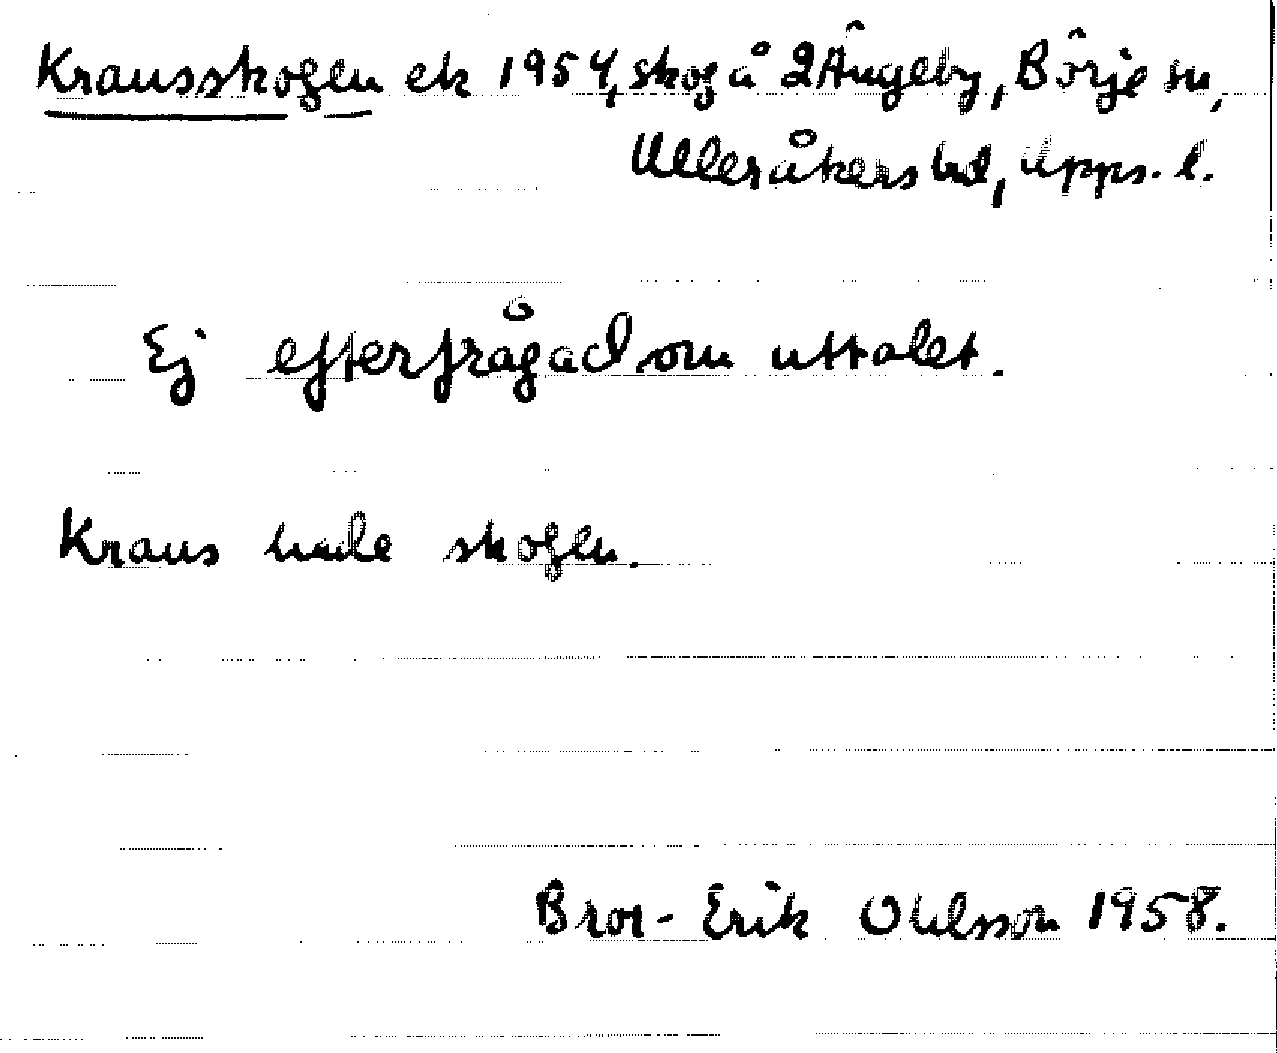 Krausskogen ek 1954, skog å 2 Ängeby, Börje sn,
Ulleråkers hd, Upps. l.
Ej efterfrågad om uttalet.
Kraus hade skogen.
Bror-Erik Ohlsson 1958.